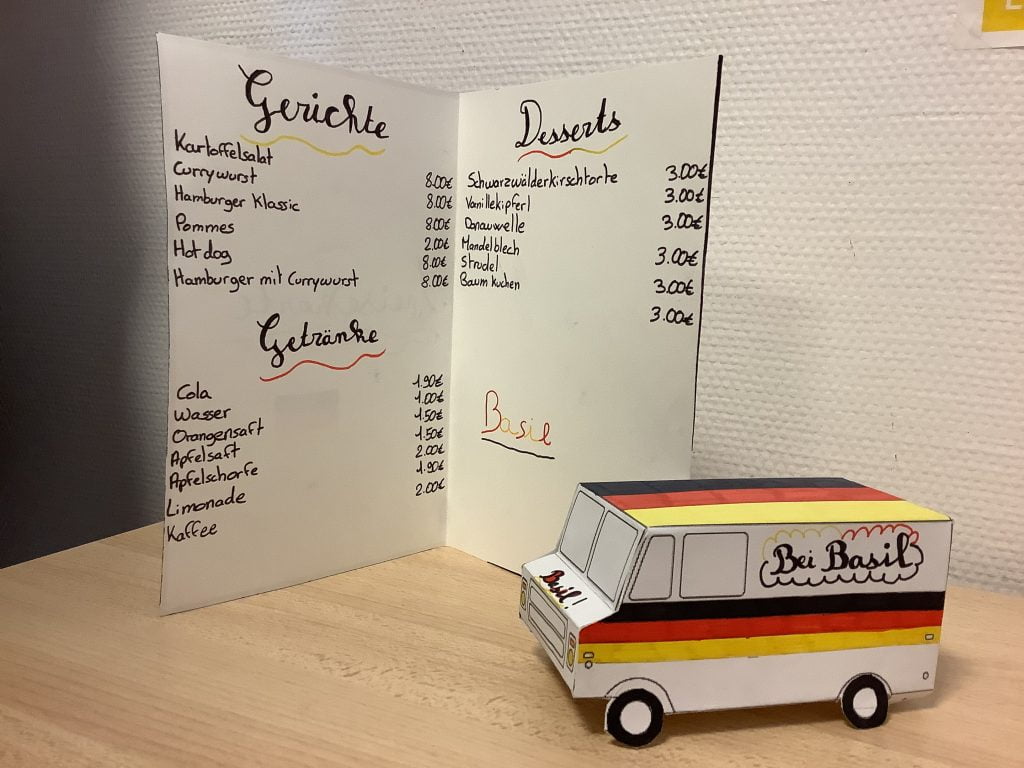 Gerichte
Kartoffelsalat 8.00€
Currywurst 8.00€
Hamburger Klassic 8.00€
Pommes 2.00€
Hot dog 8.00€
Hamburger mit Currywurst 8.00€
Getränke
Cola 1.90€
Wasser 1.00€
Orangensaft 1.50€
Apfelsaft 1.50€
Apfelschorfe 2.00€
Limonade 1.90€
Kaffee 2.00€
Desserts
Schwarzwälderkirschtorte 3.00€
Vanillekipferl 3.00€
Donauwelle 3.00€
Mandelblech 3.00€
Strudel 3.00€
Baumkuchen 3.00€
Basil
Bei Basil
Basil!